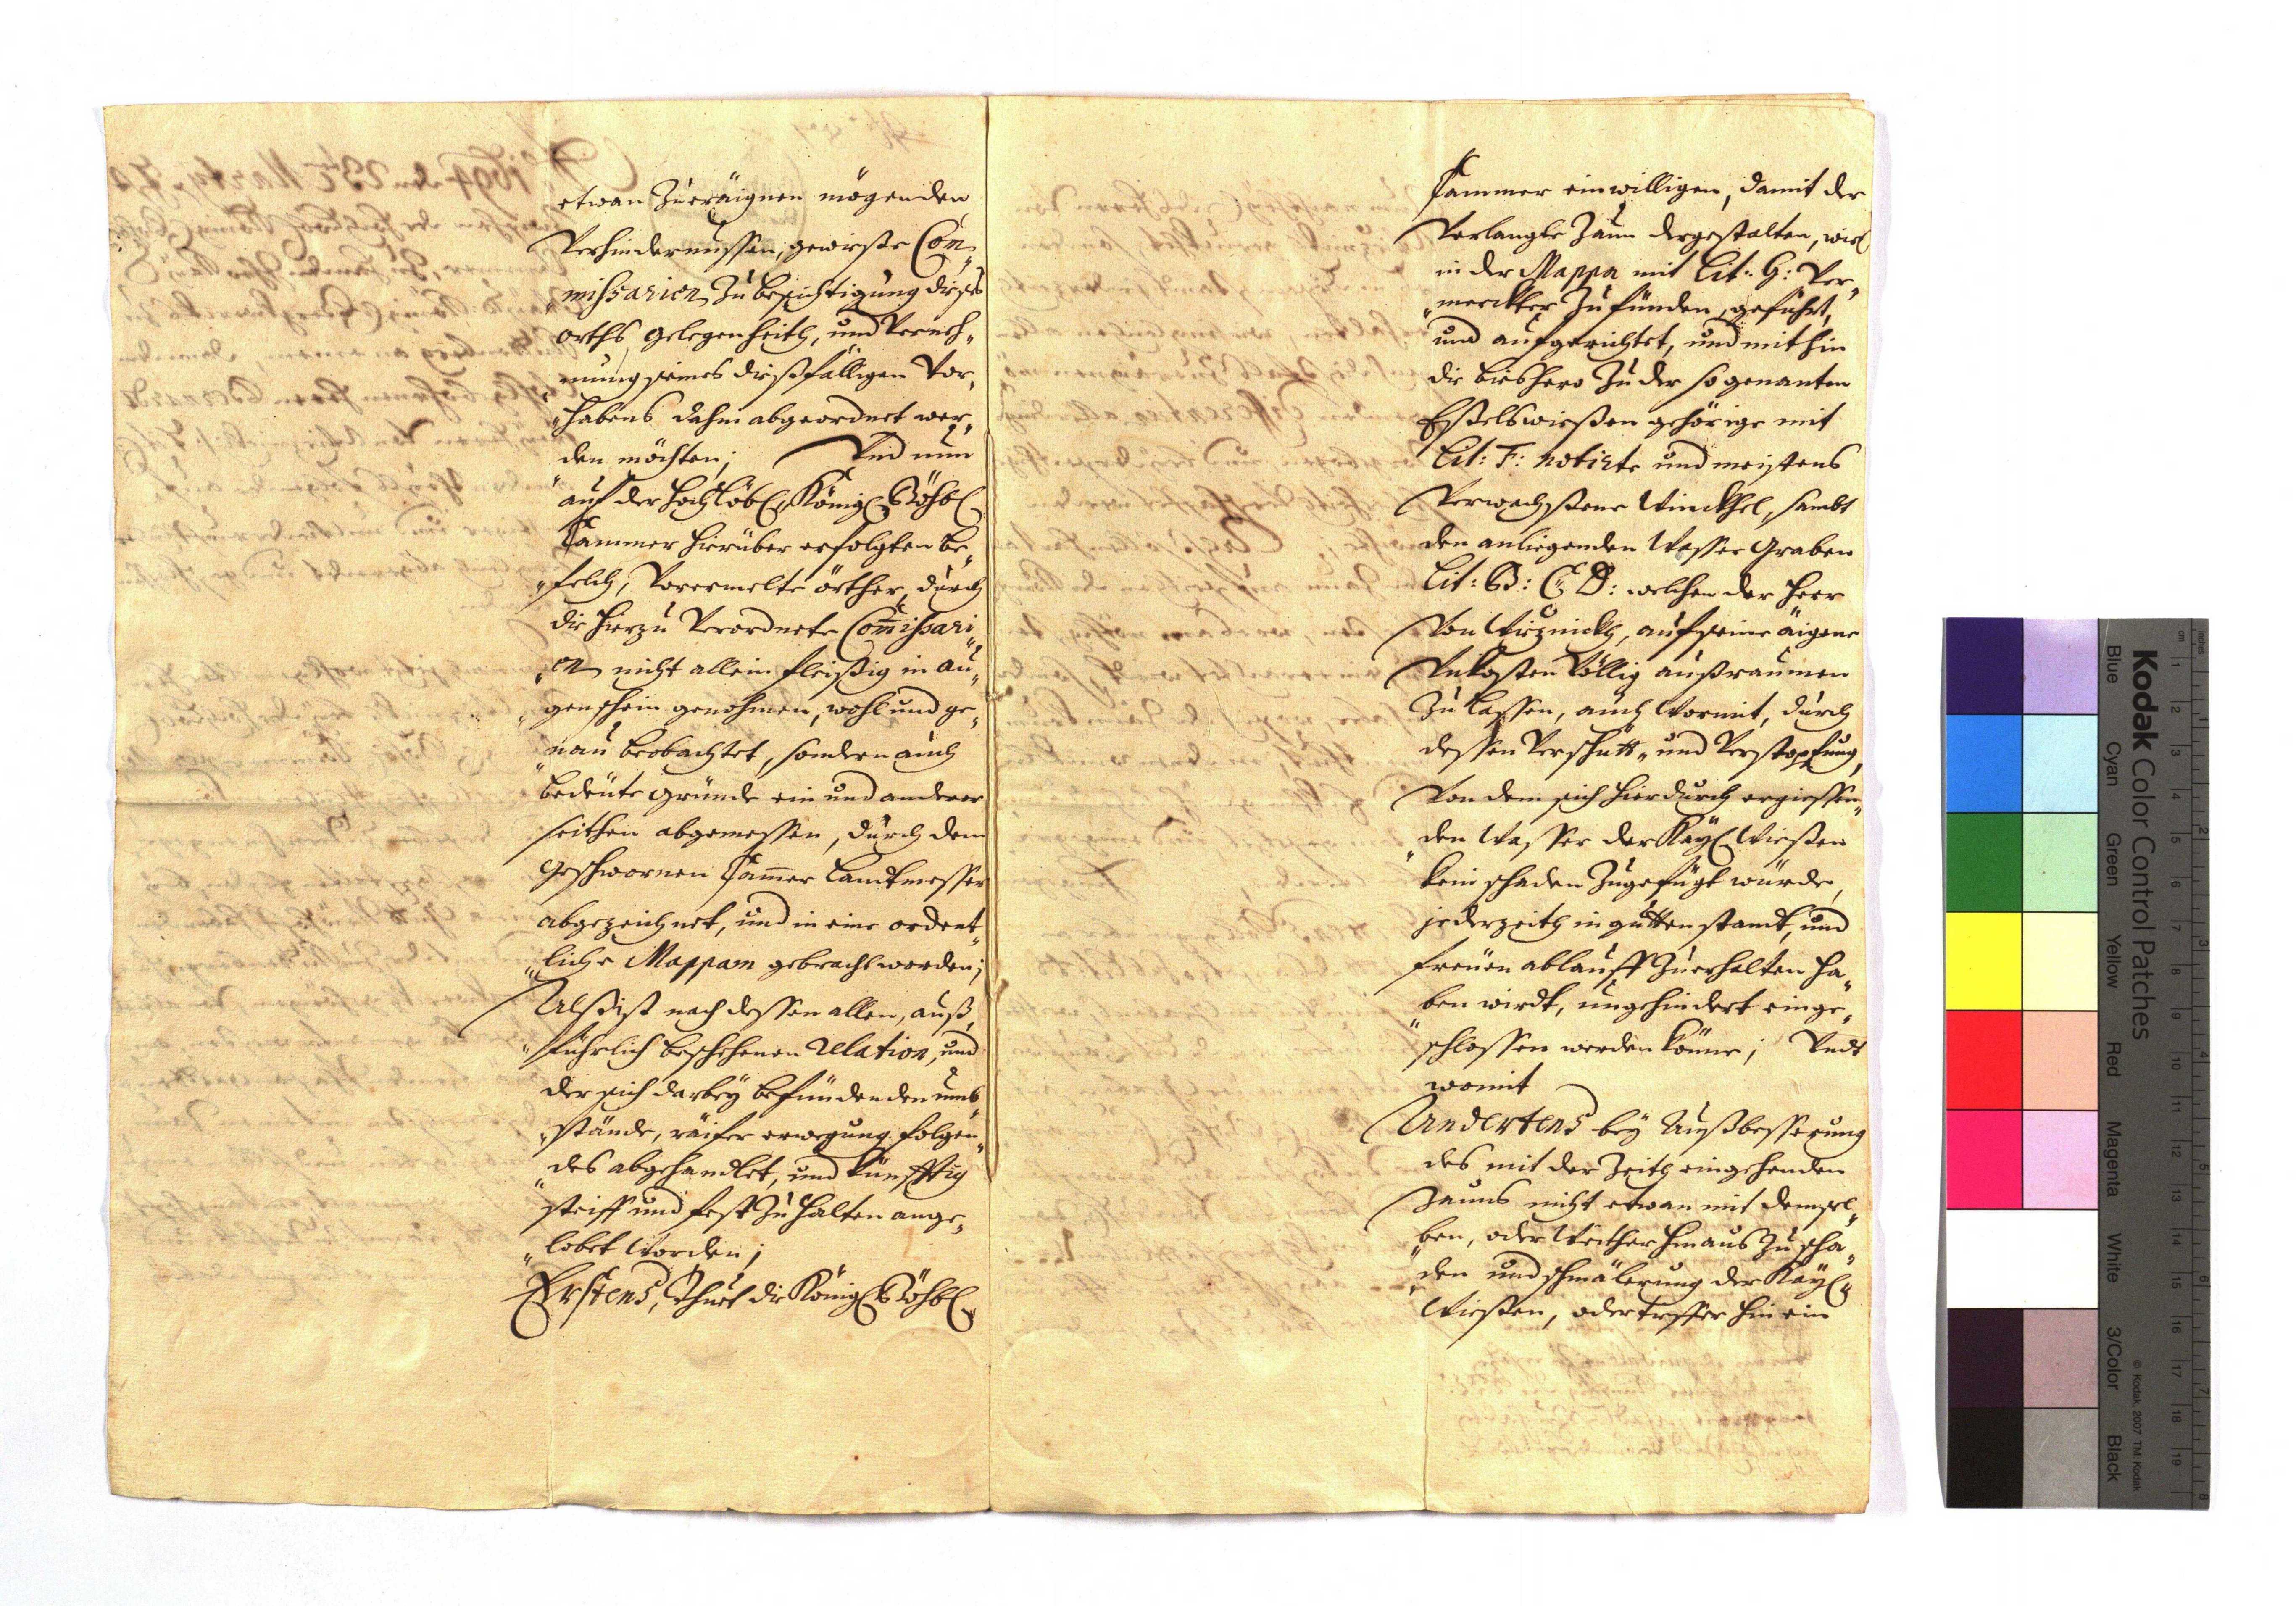 etwan Zueräignen mögenden
Verhindernussen, gewiesse Com„
„missarien, Zu besichtigung dieses
orths gelegenheith, und Verneh„
„mung seines diesfälligen Vor„
„habens dahin abgeordnet wer„
„den möchten; Und nun
auf der hochlöbl. Königl. Böhbl.
Cammer hierüber erfolgten be„
„felch, Vorermelte örther, durch
die hierzu Verordnete Com̄issari„
„en nicht allein fleissig in au„
„genschein genohmen, wohl und ge„
„nau beobachtet, sondern auch
bedeute gründe ein und anderer
seithen abgemessen, durch dem
geschwornen Cam̄er Landtmesser
abgezeichnet, und in eine ordent„
„liche Mappam gebracht worden;
Alß ist nach dessen allen, auß„
„führlich beschehenen Relation, und
der sich darbey befündenden umb„
„stände, räifer erwegung folgen„
„des abgehandlet, und künfftig
steiff und fest Zu halten ange„
„lobet worden;
Erstens, Thuet die Königl. Böhbl.
Cammer einwilligen, damit der
Verlangte Zaun dergestalten, wie
in der Mappa mit Lit: G: Ver„
„merckter Zufünden, geführt,
und aufgerichtet, und mithin
die bieshero Zu der so genanten
Esselswiessen gehörige mit
Lit: F: notirte und meistens
Verwachssene Winckhel, sambt
den anliegenden Wasser graben
Lit: B: C: D: welchen der Herr
Von Wirznickh, auf seine äigene
Unkosten Völlig außraumen
Zu lassen, auch Wormit, durch
dessen Verschütt„ und Verstopfung,
Von dem sich hierdurch ergiessen„
„den Wasser der Kayl. Wiessen
kein schaden Zugefügt würde,
jederzeith in gutten standt, und
freyen ablauff Zuerhalten ha„
„ben wirdt, ungehindert einge„
„schlossen werden könne; Undt
womit
Andertens bey Außbesserung
des mit der Zeith eingehenden
Zauns nicht etwan mit demsel„
„ben, oder Weither hinaus Zu scha„
„den und schmälerung der Kayl.
Wiessen, oder tieffer hinein
Kodak Color Control Patches
Blue Cyan Green Yellow Red Magenta White 3/Color Black
© Kodak, 2007 TM: Kodak